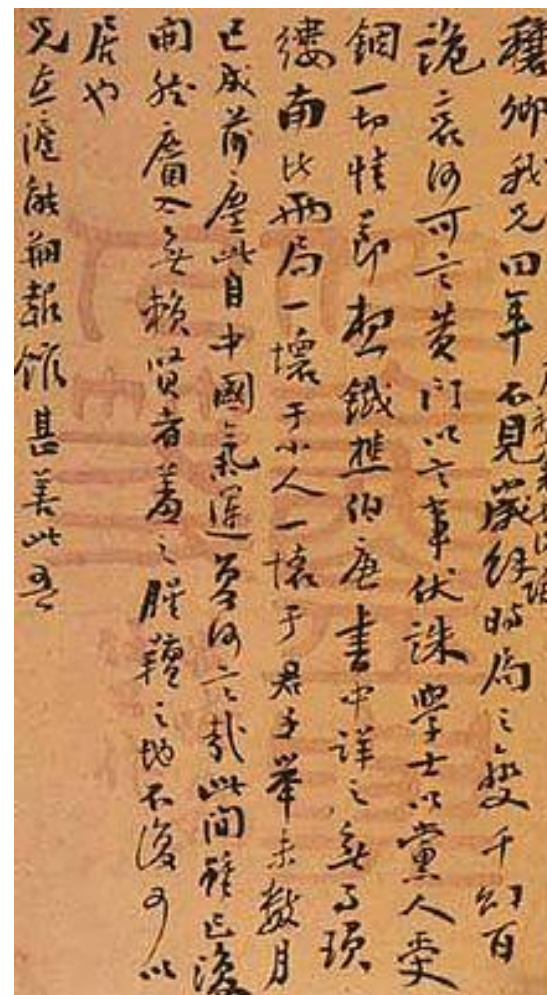 穰卿我兄年不見時局之變千幻百
詭哀何可言黃門以言事伏誅學士以黨人受
錮一切情節想鐵樵伯唐書中詳之無事瑣
縷南北兩局一壞于小人一壞于君子舉未數月
已成前塵此自中國氣運夐何言哉此間雖已復
開然麕入無賴賢者羞之腥羶之地不復可以
居也
兄在滬能報館甚善此吾